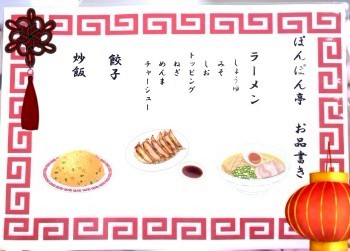 ぽんぽん亭 お品書き
ラーメン
しょうゆ
みそ
しお
トッピング
ねぎ
めんま
チャーシュー
餃子
炒飯